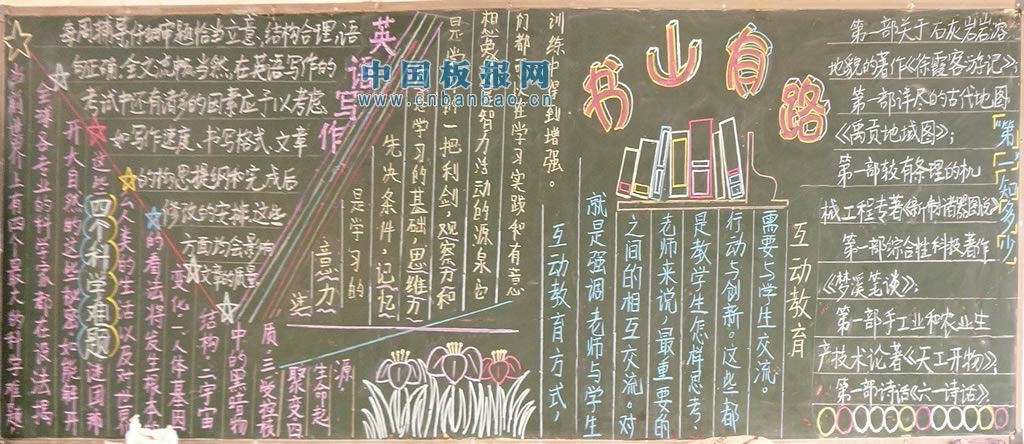 每周辅导仔细审题恰当立意、结构合理、语
句正确、全文流畅当然,在英语写作的
考试中还有诸多的因素应予以考虑
如写作速度、书写格式、文章
的构思提纲和完成后
修改的安排,这些
方面均会影响
文章的质量
英语写作
中国板报网
www.cnbanbao.cn
四个科学难题
目前世界上有四个最大的科学难题
全球各专业的科学家都在设法揭
开大自然的这些秘密如能解开
这些
谜团那
么人类的生活以及对世界
的看法将发生根本的
变化一人体基因
结构二宇宙
中的黑暗物
质三受控核
聚变四
生命起
源
训练中得到增强。
在学习实践和有意
想象是智力活动的源泉
一把利剑,观察力和
学习的基础,思维力
先决条件,记忆
是学习的
意力
书山有路
互动教育
需要与学生交流。
行动与创新。这些都
是教学生怎样思考?
老师来说,最重要的
之间的相互交流。对
就是强调老师与学生
互动教育方式,
"第一"知多少
第一部关于石灰岩岩溶
地貌的著作《徐霞客游记》;
第一部详尽的古代地图
《禹贡地域图》;
第一部较有条理的机
械工程专著《新制诸器图说》
第一部综合性科技著作
《梦溪笔谈》;
第一部手工业和农业生
产技术论著《天工开物》;
第一部诗话《六一诗话》。